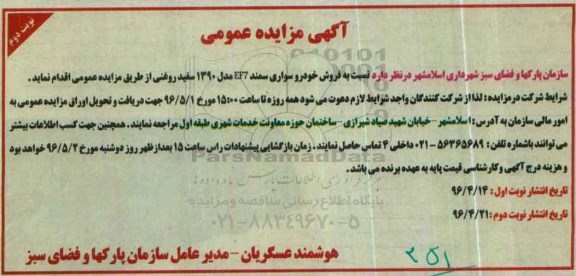 نوبت دوم
آگهی مزایده عمومی
سازمان پارکها و فضای سبز شهرداری اسلامشهر درنظر دارد نسبت به فروش خودرو سواری سمند EF7 مدل ۱۳۹۰ سفید روغنی از طریق مزایده عمومی اقدام نماید.
شرایط شرکت در مزایده : لذا از شرکت کنندگان واجد شرایط لازم دعوت می شود همه روزه تا ساعت ۱۵:۰۰ مورخ ۹۶/۵/۱ جهت دریافت و تحویل اوراق مزایده عمومی به
امور مالی سازمان به آدرس : اسلامشهر - خیابان شهید صیاد شیرازی - ساختمان حوزه معاونت خدمات شهری طبقه اول مراجعه نمایند. همچنین جهت کسب اطلاعات بیشتر
می توانند باشماره تلفن : ۵۶۳۶۵۶۸۹-۰۲۱ داخلی ۴ تماس حاصل نمایند. زمان بازگشایی پیشنهادات راس ساعت ۱۵ بعدازظهر روز دوشنبه مورخ ۹۶/۵/۲ خواهد بود
و هزینه درج آگهی و کارشناسی قیمت پایه به عهده برنده می باشد.
تاریخ انتشار نوبت اول : ۹۶/۴/۱۴
تاریخ انتشار نوبت دوم : ۹۶/۴/۲۱
هوشمند عسگریان - مدیر عامل سازمان پارکها و فضای سبز
ParsNamadData
پایگاه اطلاع رسانی مناقصه و مزایده
۰۲۱-۸۸۳۴۹۶۷۰-۵